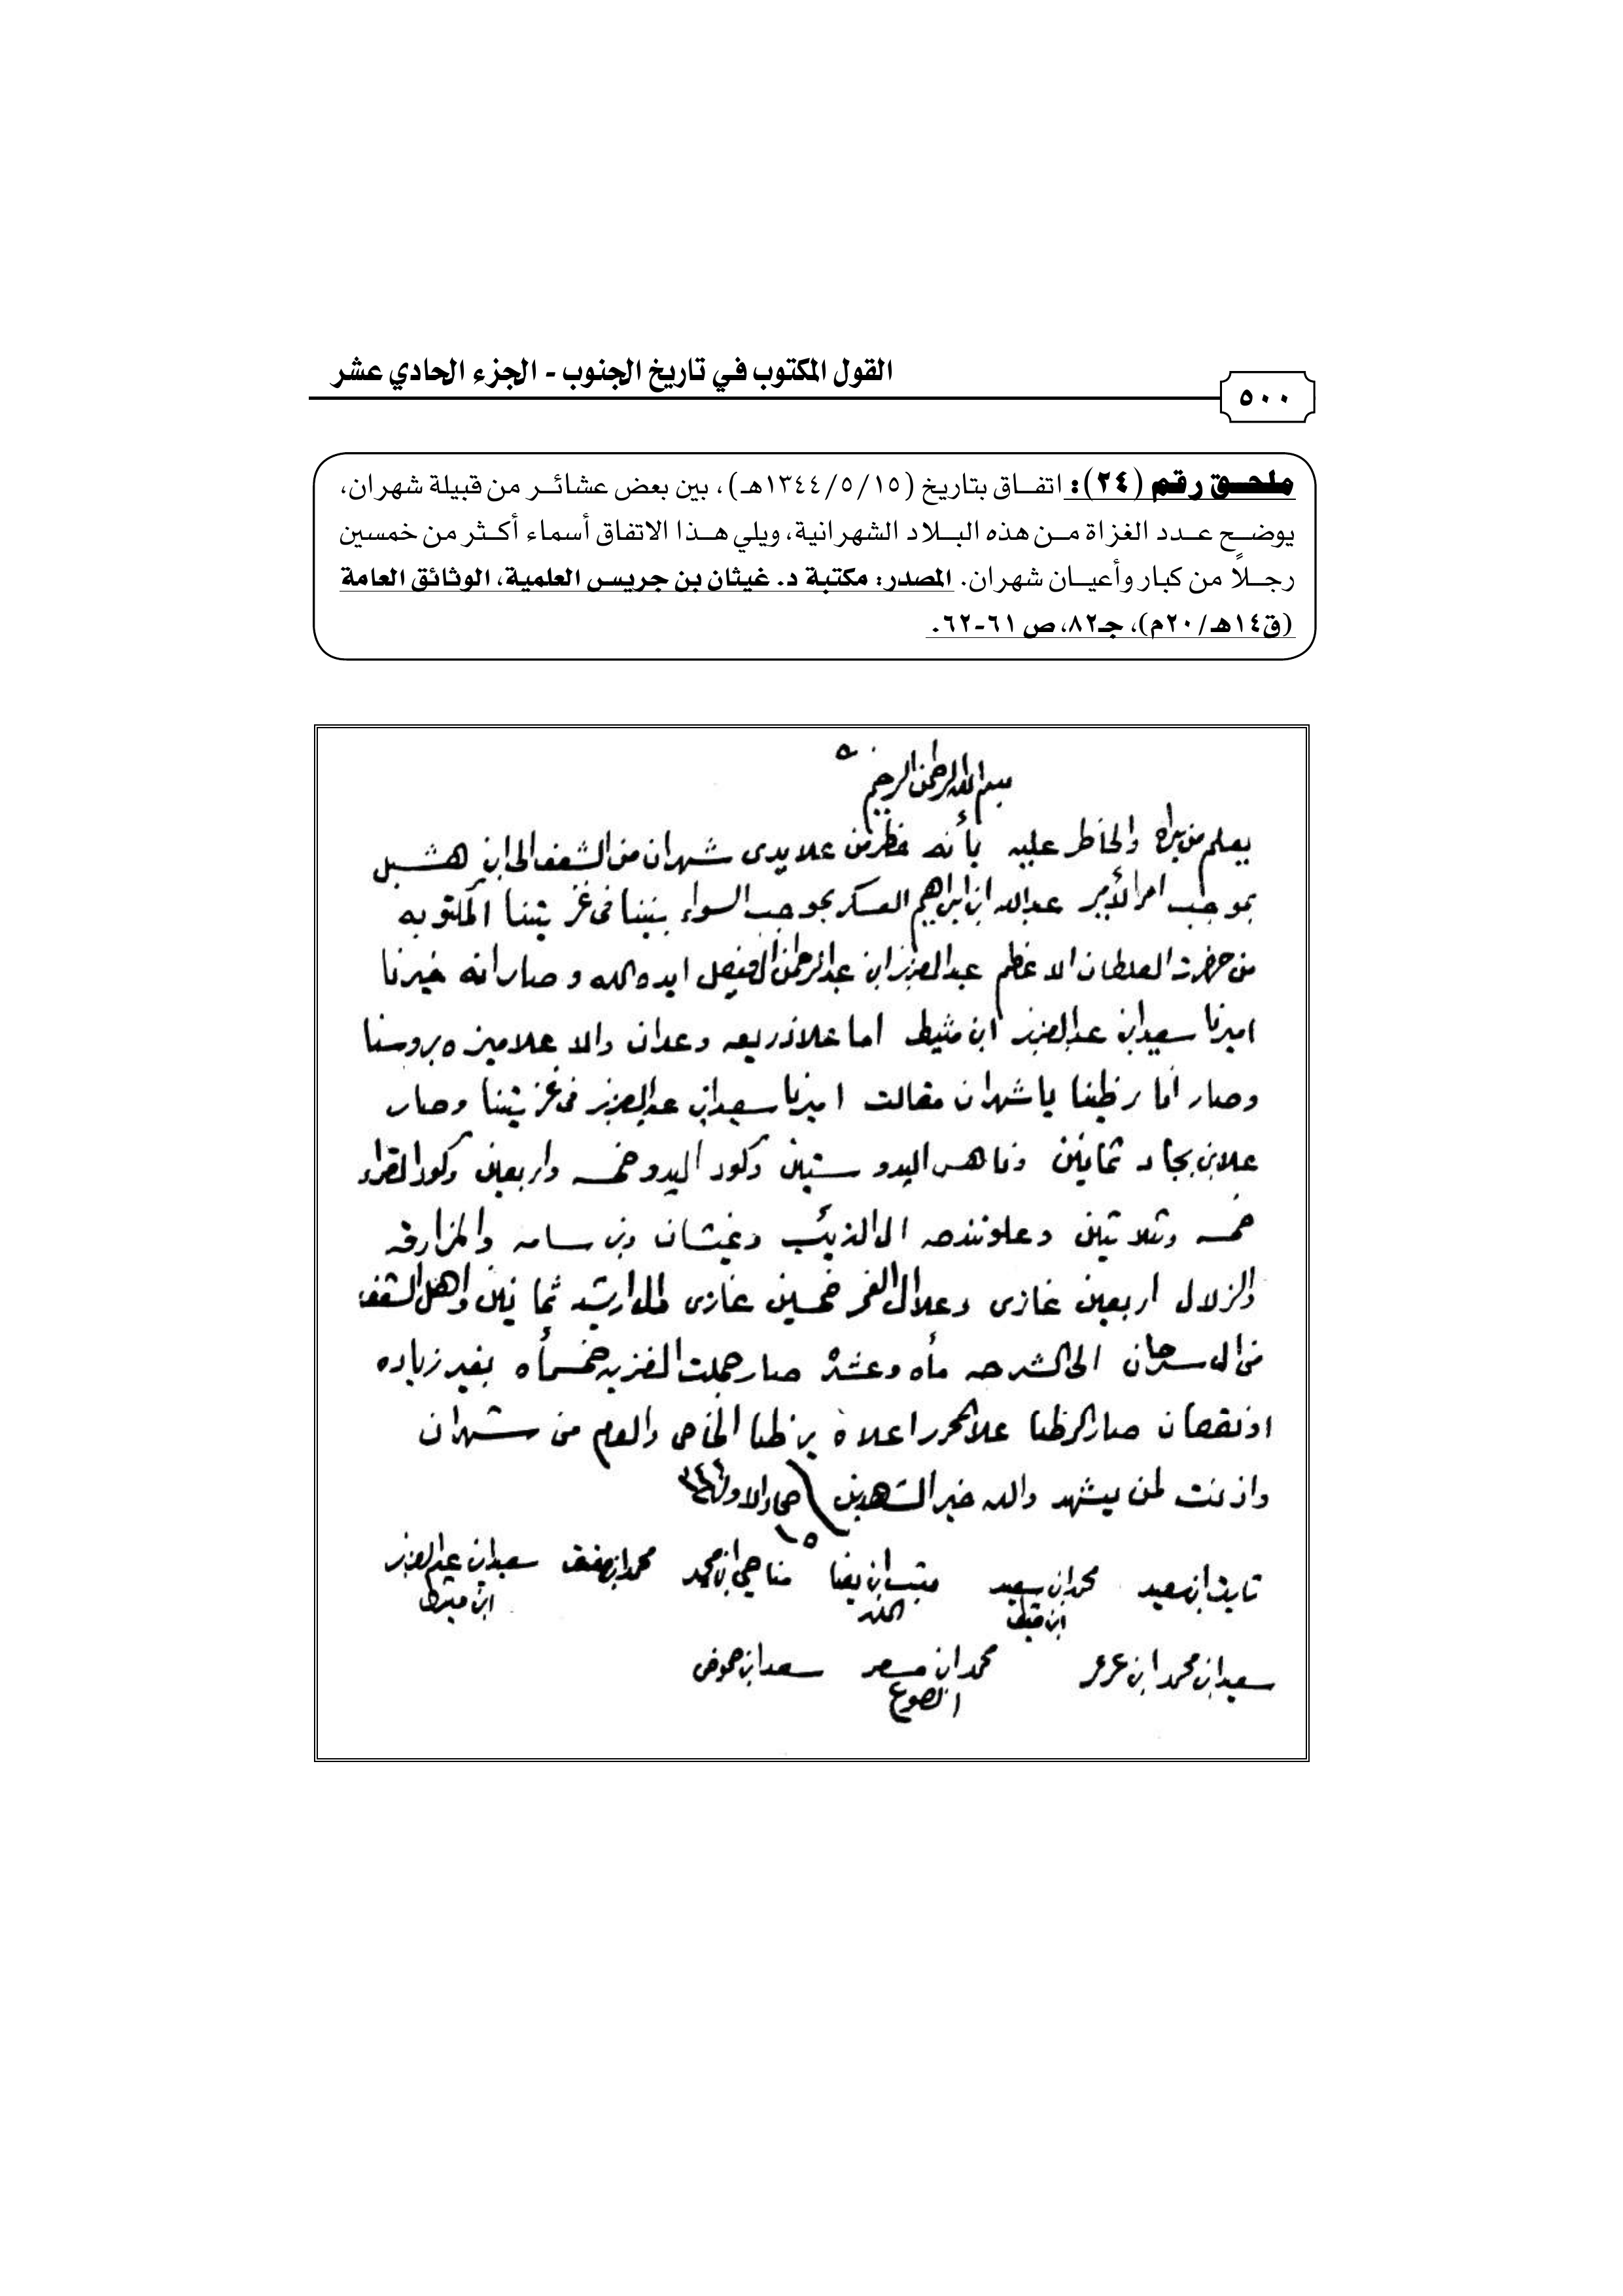 القول المكتوب في تاريخ الجنوب - الجزء الحادي عشر
٥٠٠
ملحق رقم (٢٤): اتفاق بتاريخ (١٣٤٤/٥/١٥هـ)، بين بعض عشائر من قبيلة شهران،
يوضح عدد الغزاة من هذه البلاد الشهرانية، ويلي هذا الاتفاق أسماء أكثر من خمسين
رجلاً من كبار وأعيان شهران. المصدر: مكتبة د. غيثان بن جريس العلمية، الوثائق العامة
(ق١٤هـ/٢٠م)، جـ٨٢، ص ٦١-٦٢.
بسم الله الرحمن الرحيم
يعلم من يراه والخاظر عليه بأنه علا يدى شهران من الشعف الى ابن هشبل
بموجب امر الأمير عبدالله ابن ابراهيم العسكر بموجب السواء بيننا فى غزيتنا المكتوبه
من حضرت السلطان الاعظم عبدالعزيز ابن عبدالرحمن الفيصل ايده الله وصار انه خيرنا
اميرنا سعيد ابن عبدالعزيز ابن مشيط اما علا ذريعه وعدان والا علا ميزه بروسنا
وصار أنا رظينا يا شهران مقالت اميرنا سعيد ابن عبدالعزيز فى غزيتنا وصار
علا بن بجاد ثمانين وناهس البدو ستين وكود البدو خمسه واربعين وكود القراء
خمسه وثلاثين وعلا ال الذيب وغيثان وبن سامه والمزارقه
والزلال اربعين غازى وعلا ال الغمر خمسين غازى ال ارشيد ثمانين واهل الشعف
من ال سرحان الى الشرحه مأه وعشره صار جملت الغزيه خمسمأه بغير زياده
او نقصان صار الرظا علا المحرر اعلاه برظا الخاص والعام من شهران
واذنت لمن يشهد والله خير الشهدين ١٥ جماد الاول ١٣٤٤
ثابت ابن سعيد محمد ابن سعيد ابن يعنا مناحي ابن محمد محمد ابن سعيد ابن عبدالعزيز
ابن مشيط
سعيد ابن محمد ابن عرعر محمد ابن مسعر سعد ابن حموض